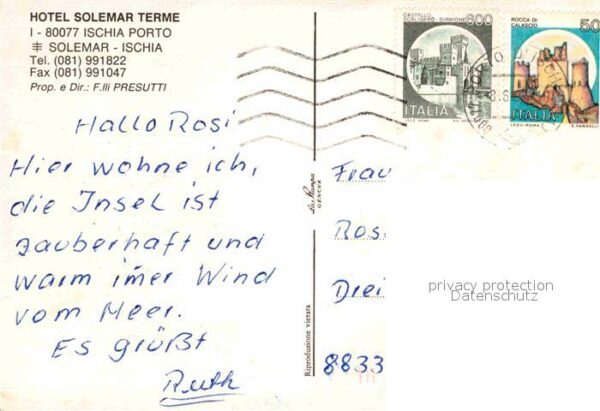 HOTEL SOLEMAR TERME
I - 80077 ISCHIA PORTO
SOLEMAR - ISCHIA
Tel. (081) 991822
Fax (081) 991047
Prop. e Dir.: F.lli PRESUTTI
Hallo Rosi
Hier wohne ich,
die Insel ist
zauberhaft und
warm imer Wind
vom Meer.
Es grüßt
Ruth
CASTELLO
SCALIGERO SIRMIONE
300
ITALIA
ROCCA DI
CALASCIO
50
ITALIA
I.P.Z.S. ROMA
E. VANGELLI
GENOVA
Riproduzione vietata
Frau
Ros
Drei
8833
privacy protection
Datenschutz